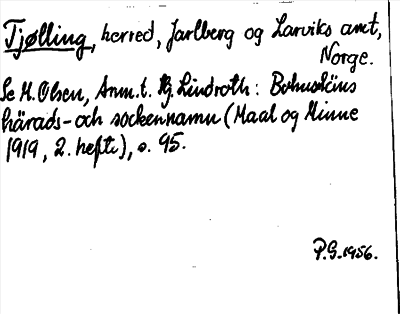 Tjølling, herred, Jarlberg og Larviks amt,
Norge.
Se M. Olsen, Anm. t. Hj. Lindroth: Bohusläns
härads- och sockennamn (Maal og Minne
1919, 2. hefte), s. 95.
P.G. 1956.